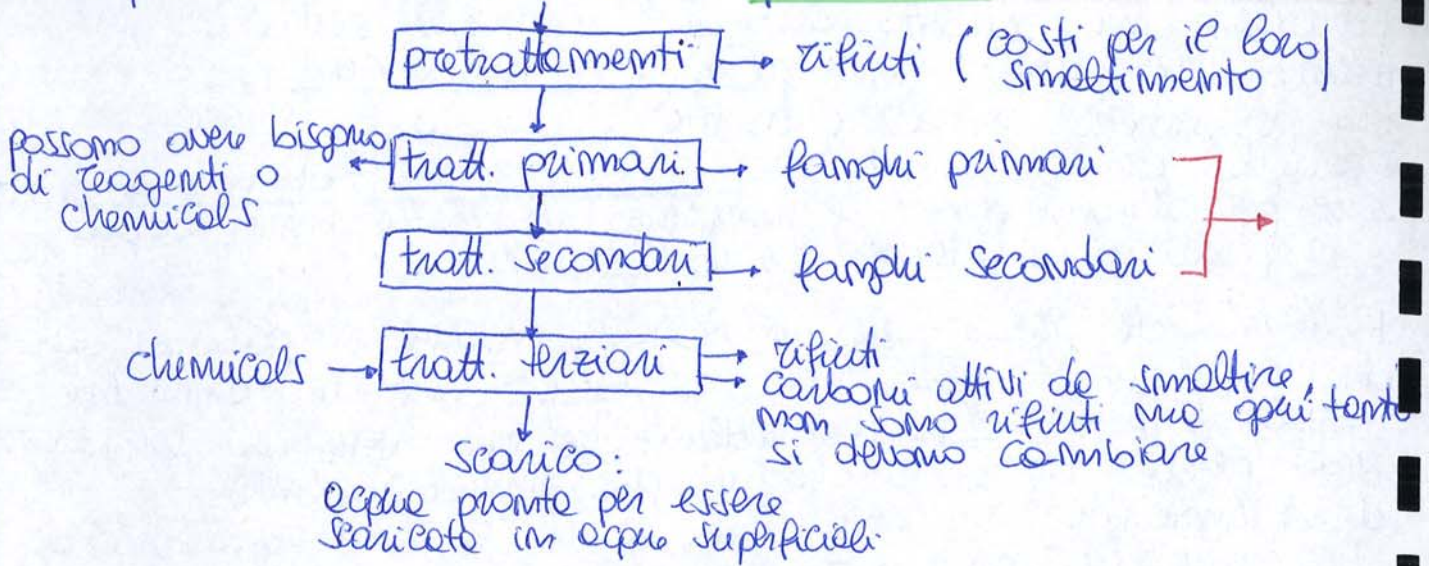 pretrattamenti
rifiuti (costi per il loro
smaltimento)
possono avere bisogno
di reagenti o
chemicals
tratt. primari.
fanghi primari
tratt. secondari
fanghi secondari
chemicals
tratt. terziari
rifiuti
carboni attivi da smaltire,
non sono rifiuti ma ogni tanto
si devono cambiare
scarico:
acqua pronta per essere
scaricata in acque superficiali